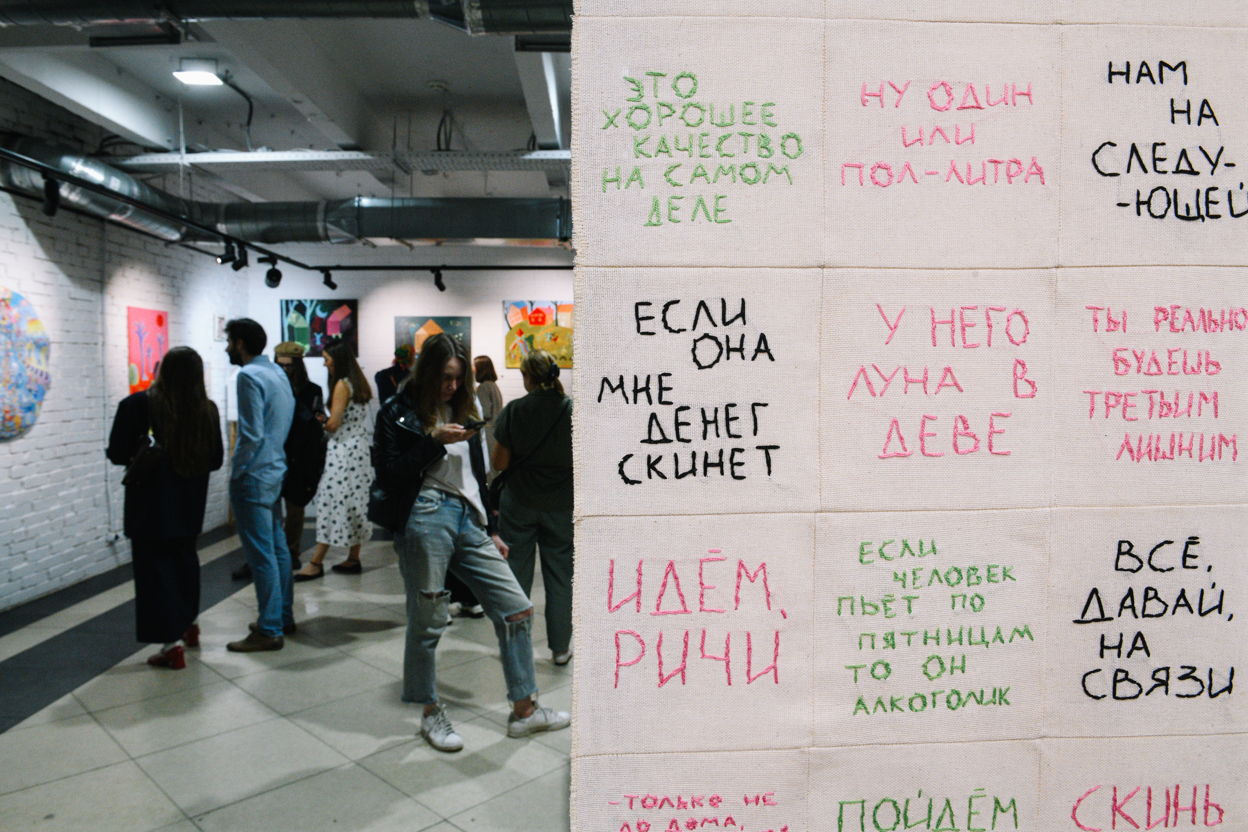 ЭТО
ХОРОШЕЕ
КАЧЕСТВО
НА САМОМ
ДЕЛЕ
НУ ОДИН
ИЛИ
ПОЛ-ЛИТРА
НАМ
НА
СЛЕДУ-
-ЮЩЕЙ
ЕСЛИ
ОНА
МНЕ
ДЕНЕГ
СКИНЕТ
У НЕГО
ЛУНА В
ДЕВЕ
ТЫ РЕАЛЬНО
БУДЕШЬ
ТРЕТЬИМ
ЛИШНИМ
ИДЁМ,
РИЧИ
ЕСЛИ
ЧЕЛОВЕК
ПЬЁТ ПО
ПЯТНИЦАМ
ТО ОН
АЛКОГОЛИК
ВСЁ,
ДАВАЙ,
НА
СВЯЗИ
-ТОЛЬКО НЕ
ДО ДОМА,
ПОЙДЁМ
СКИНЬ